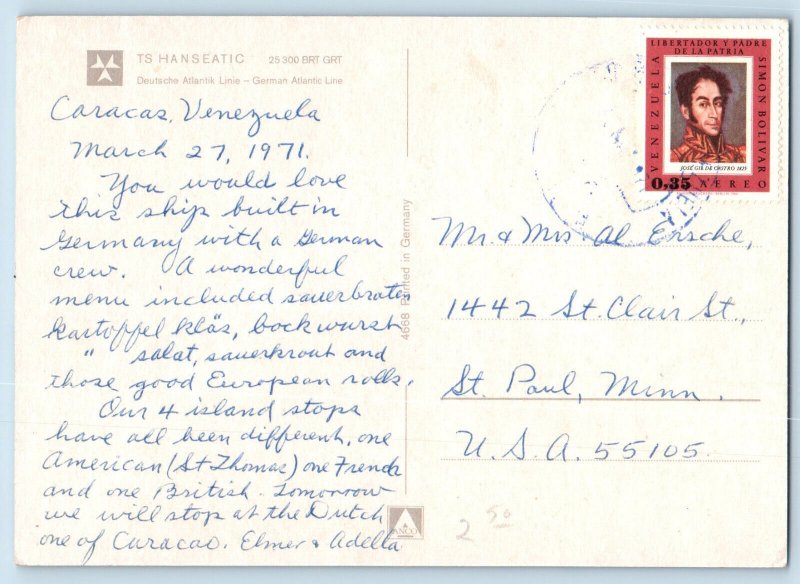 TS HANSEATIC 25 300 BRT GRT
Deutsche Atlantik Linie – German Atlantic Line
Caracas, Venezuela
March 27, 1971.
You would love
this ship built in
Germany with a German
crew. A wonderful
menu included sauerbraten
Kartoffel kläs, bockwurst
" salat, sauerkraut and
those good European rolls.
Our 4 island stops
have all been different, one
American (St Thomas) one French
and one British. Tomorrow
we will stop at the Dutch
one of Curacao. Elmer & Adella
4668 Printed in Germany
ANCO
LIBERTADOR Y PADRE
DE LA PATRIA
VENEZUELA
SIMON BOLIVAR
JOSÉ GIL DE CASTRO 1825
0,35 AEREO
Mr. & Mrs. Al Ensche,
1442 St. Clair St.,
St. Paul, Minn.
U.S.A. 55105.
2 50